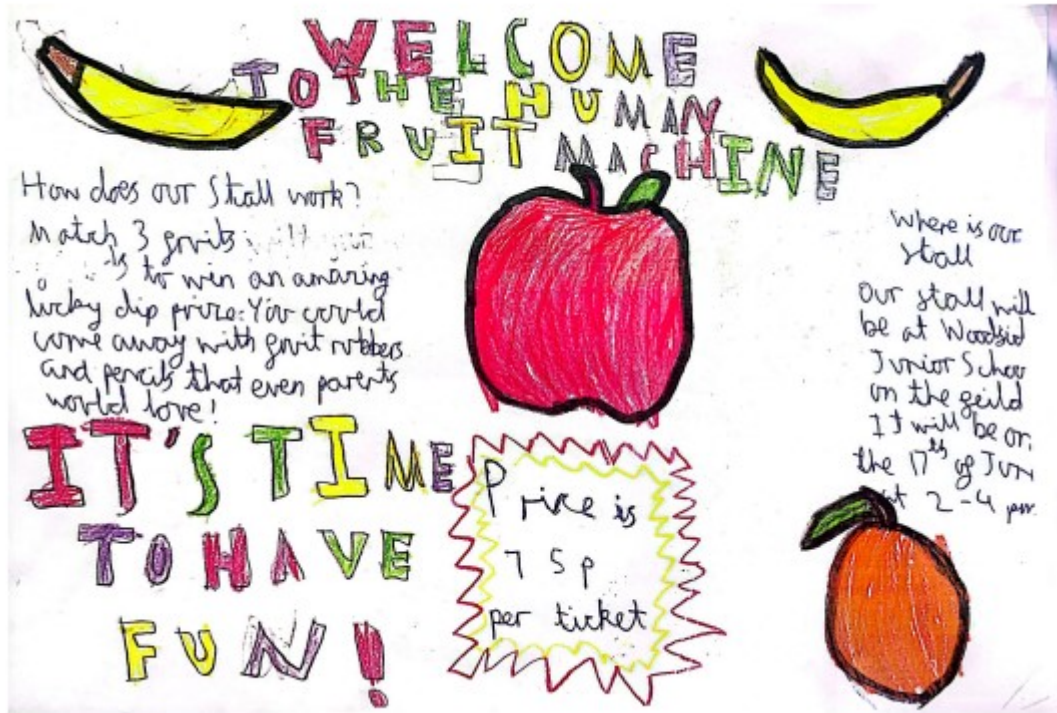 WELCOME
TO THE HUMAN
FRUIT MACHINE
How does our Stall work?
Match 3 fruits
to win an amazing
lucky dip prize. You could
come away with fruit rubbers
and pencils that even parents
would love!
IT'S TIME
TO HAVE
FUN!
Price is
75p
per ticket
Where is our
stall
Our stall will
be at Woodsid
Junior Schoo
on the feild
It will be on
the 17th of Jun
at 2-4 pm